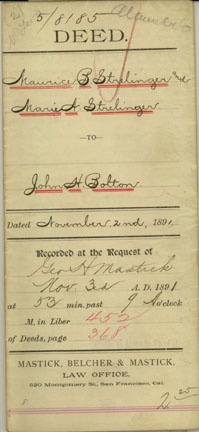 5/8185
DEED.
Maurice B Strelinger and
Marie A. Strelinger
TO
John H. Bolton
Dated November 2nd, 1891
Recorded at the Request of
Geo H Mastick
Nov. 3d A. D. 1891
at 53 min. past 9 o'clock
M. in Liber 452
of Deeds, page 368
MASTICK, BELCHER & MASTICK,
LAW OFFICE,
520 Montgomery St., San Francisco, Cal.
2 25